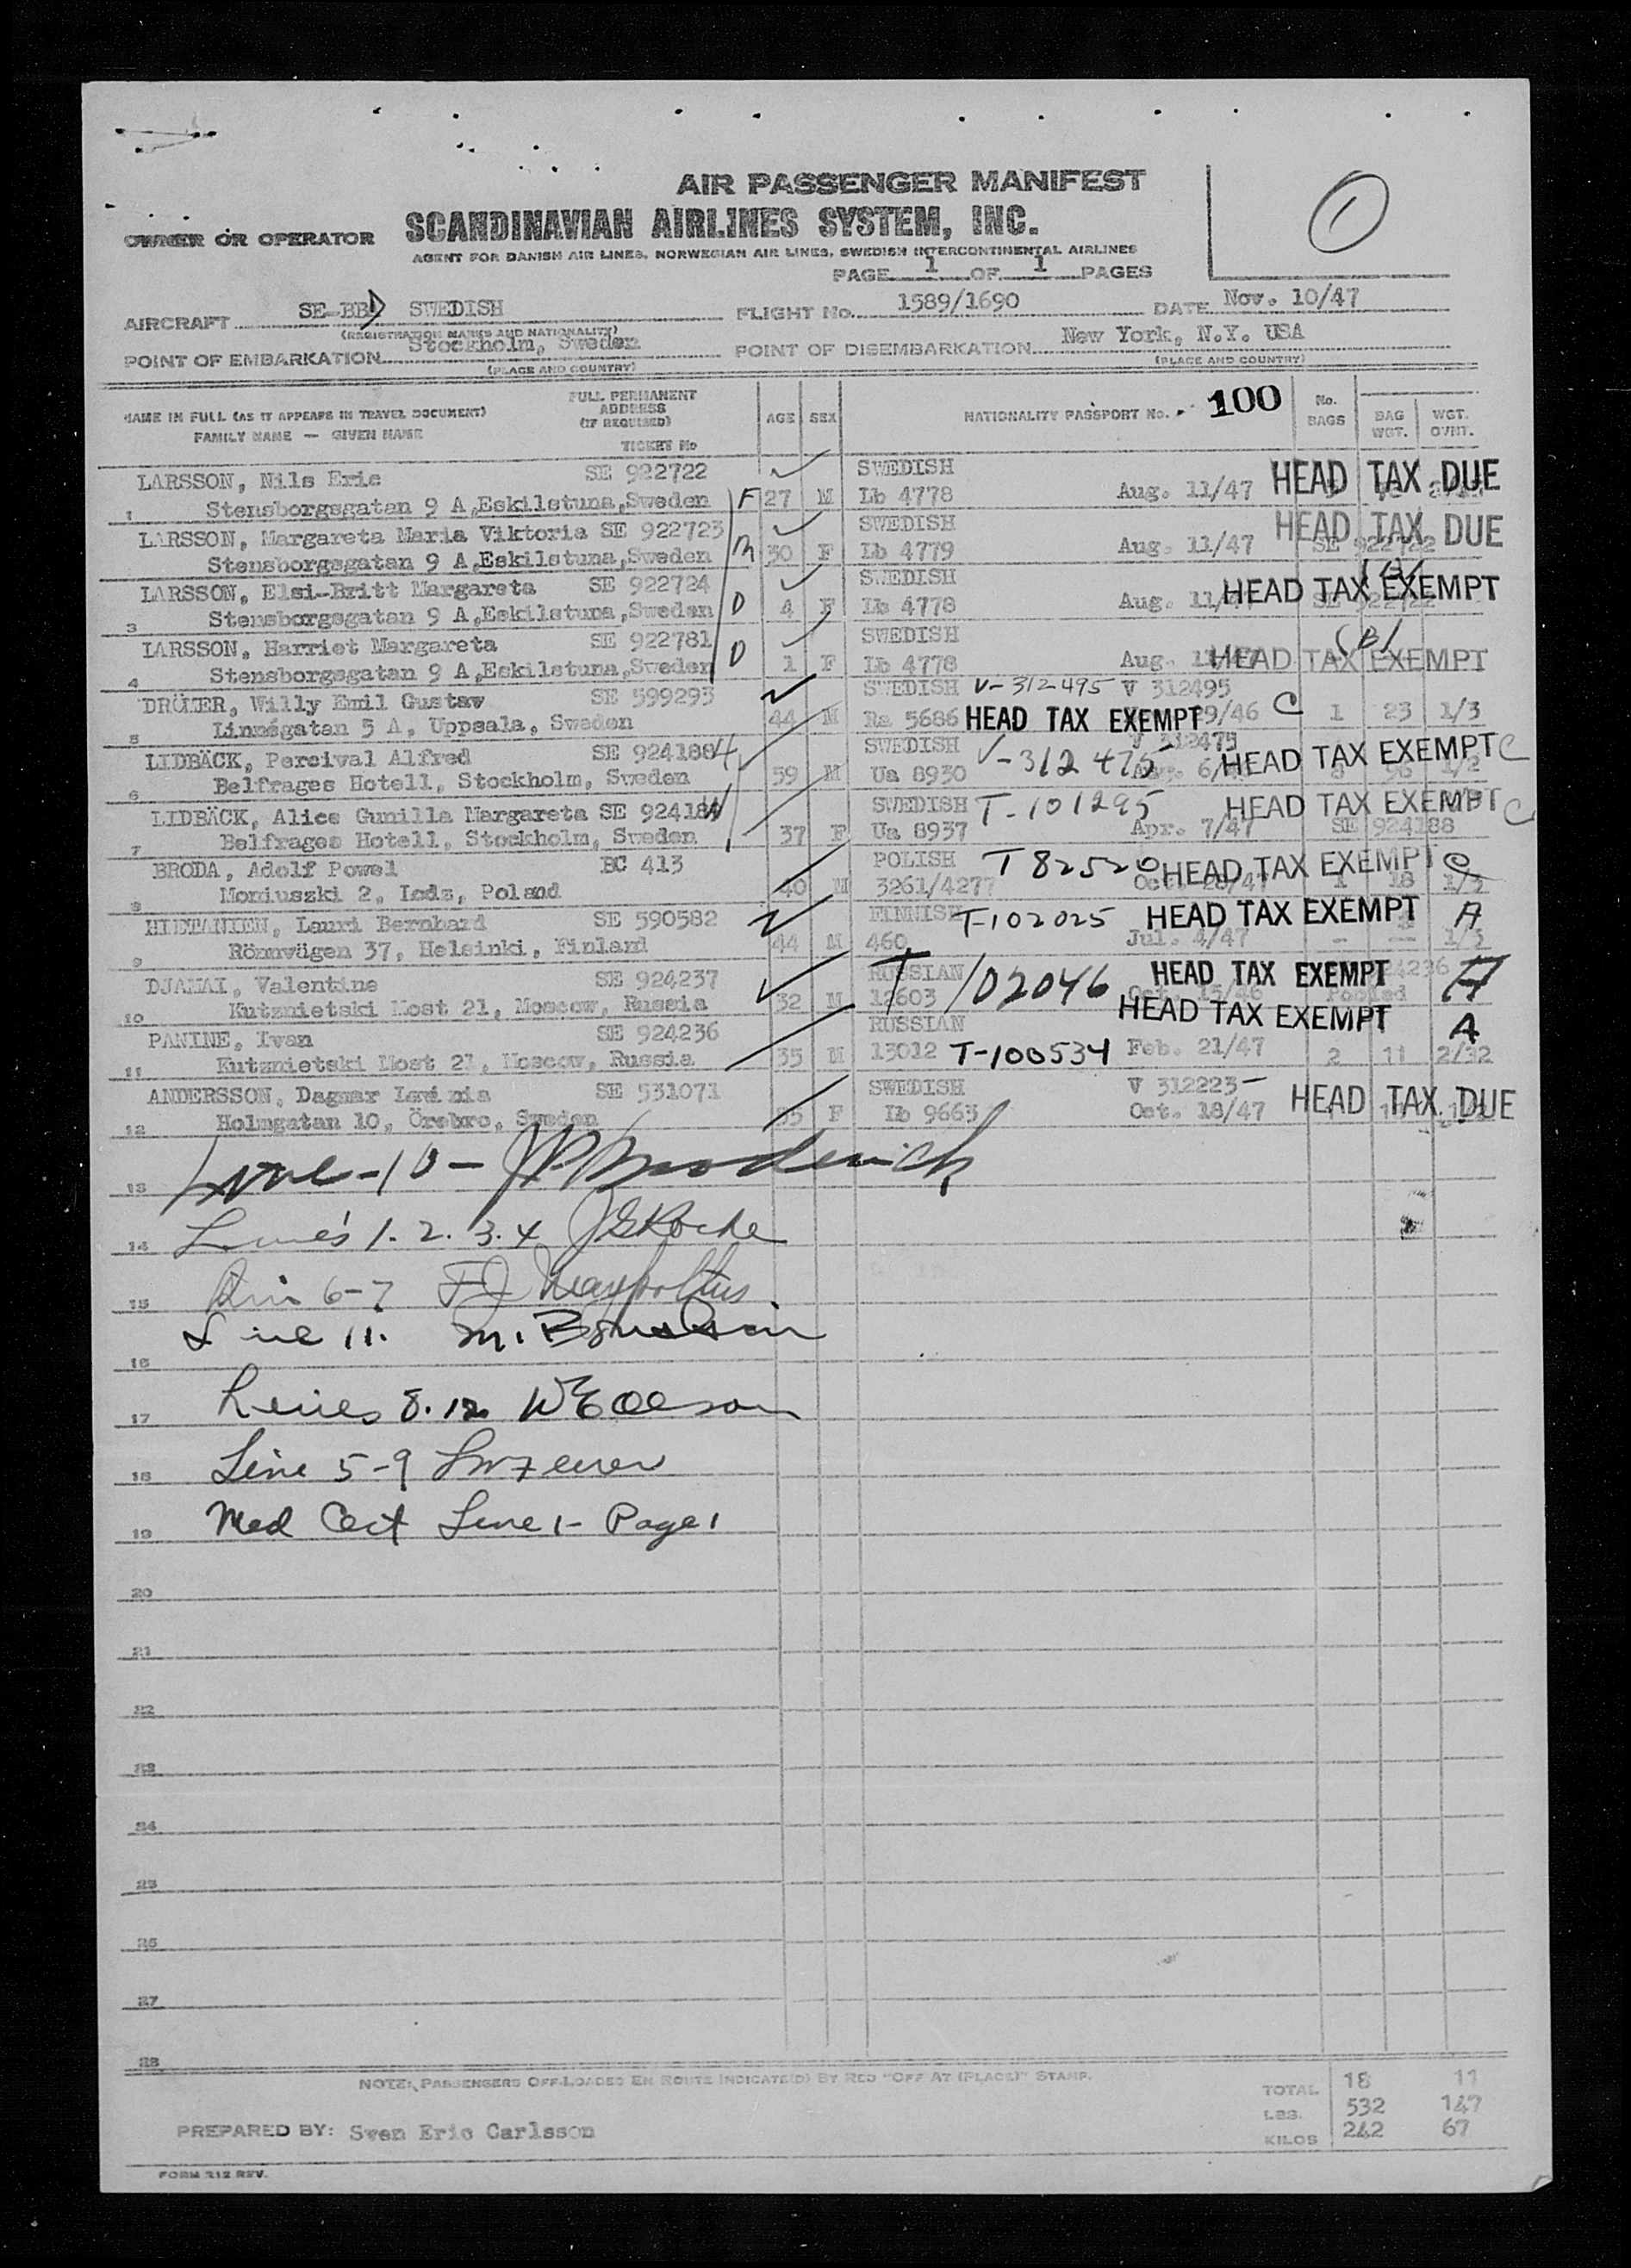 AIR PASSENGER MANIFEST
1
OWNER OR OPERATOR SCANDINAVIAN AIRLINES SYSTEM, INC.
AGENT FOR DANISH AIR LINES, NORWEGIAN AIR LINES, SWEDISH INTERCONTINENTAL AIRLINES
PAGE 1 OF 1 PAGES
AIRCRAFT SE-BBD SWEDISH FLIGHT No. 1589/1690 DATE Nov. 10/47
(REGISTRATION MARKS AND NATIONALITY)
POINT OF EMBARKATION Stockholm, Sweden POINT OF DISEMBARKATION New York, N.Y. USA
(PLACE AND COUNTRY) (PLACE AND COUNTRY)
NAME IN FULL (AS IT APPEARS IN TRAVEL DOCUMENT) FULL PERMANENT ADDRESS (IF REQUIRED) AGE SEX NATIONALITY PASSPORT No. 100 No. BAGS BAG WGT. WGT. OVHT.
FAMILY NAME — GIVEN NAME TICKET No
LARSSON, Nils Eric SE 922722 SWEDISH HEAD TAX DUE
1 Stensborgsgatan 9 A,Eskilstuna,Sweden F 27 M Lb 4778 Aug. 11/47
LARSSON, Margareta Maria Viktoria SE 922723 SWEDISH HEAD TAX DUE
Stensborgsgatan 9 A,Eskilstuna,Sweden M 30 F Lb 4779 Aug. 11/47 SE 922722
LARSSON, Elsi-Britt Margareta SE 922724 SWEDISH HEAD TAX EXEMPT
3 Stensborgsgatan 9 A,Eskilstuna,Sweden D 4 F Lb 4778 Aug. 11/47 SE 922722
LARSSON, Harriet Margareta SE 922781 SWEDISH (B) HEAD TAX EXEMPT
4 Stensborgsgatan 9 A,Eskilstuna,Sweden D 1 F Lb 4778 Aug. 11/47
DRÖMER, Willy Emil Gustav SE 599293 SWEDISH V-312495 V 312495
5 Linnégatan 5 A, Uppsala, Sweden 44 M Ra 5686 HEAD TAX EXEMPT 29/46 C 1 23 1/3
LIDBÄCK, Percival Alfred SE 924188 SWEDISH V-312475 V 312475 HEAD TAX EXEMPT C
6 Belfrages Hotell, Stockholm, Sweden 59 M Ua 8930 1/2
LIDBÄCK, Alice Gunilla Margareta SE 92418 SWEDISH T-101295 HEAD TAX EXEMPT C
7 Belfrages Hotell, Stockholm, Sweden 37 F Ua 8937 Apr. 7/47 SE 924188
BRODA, Adolf Powel BC 413 POLISH T 82520 HEAD TAX EXEMPT C
8 Moniuszki 2, Lodz, Poland 40 M 3261/4277 Oct. 28/47 1 18 1/3
HIETANIEN, Lauri Bernhard SE 590582 FINNISH T-102025 HEAD TAX EXEMPT A
9 Rönnvägen 37, Helsinki, Finland 44 M 460 Jul. 4/47 — — 1/3
DJAMAI, Valentine SE 924237 RUSSIAN T 102046 HEAD TAX EXEMPT 924236 A
10 Kutznietski Most 21, Moscow, Russia 32 M 12603 Oct. 15/46 Pooled
PANINE, Ivan SE 924236 RUSSIAN HEAD TAX EXEMPT A
11 Kutznietski Most 21, Moscow, Russia 35 M 13012 T-100534 Feb. 21/47 2 11 2/32
ANDERSSON, Dagmar Lavinia SE 531071 SWEDISH V 312223 HEAD TAX DUE
12 Holmgatan 10, Örebro, Sweden 35 F Lb 9663 Oct. 18/47
13 Line-10- JP Broderick
14 Line's 1. 2. 3. 4 JGRoche
15 6-7 FJ
16 Line 11. M.
17 Lines 8.12 WEOlson
18 Line 5-9
19 Med Cert Line 1- Page 1
20
21
22
23
24
25
26
27
28
NOTE: PASSENGERS OFF-LOADED EN ROUTE INDICATE(D) BY RED "OFF AT (PLACE)" STAMP.
TOTAL 18 11
LBS. 532 147
KILOS 242 67
PREPARED BY: Sven Eric Carlsson
FORM 212 REV.